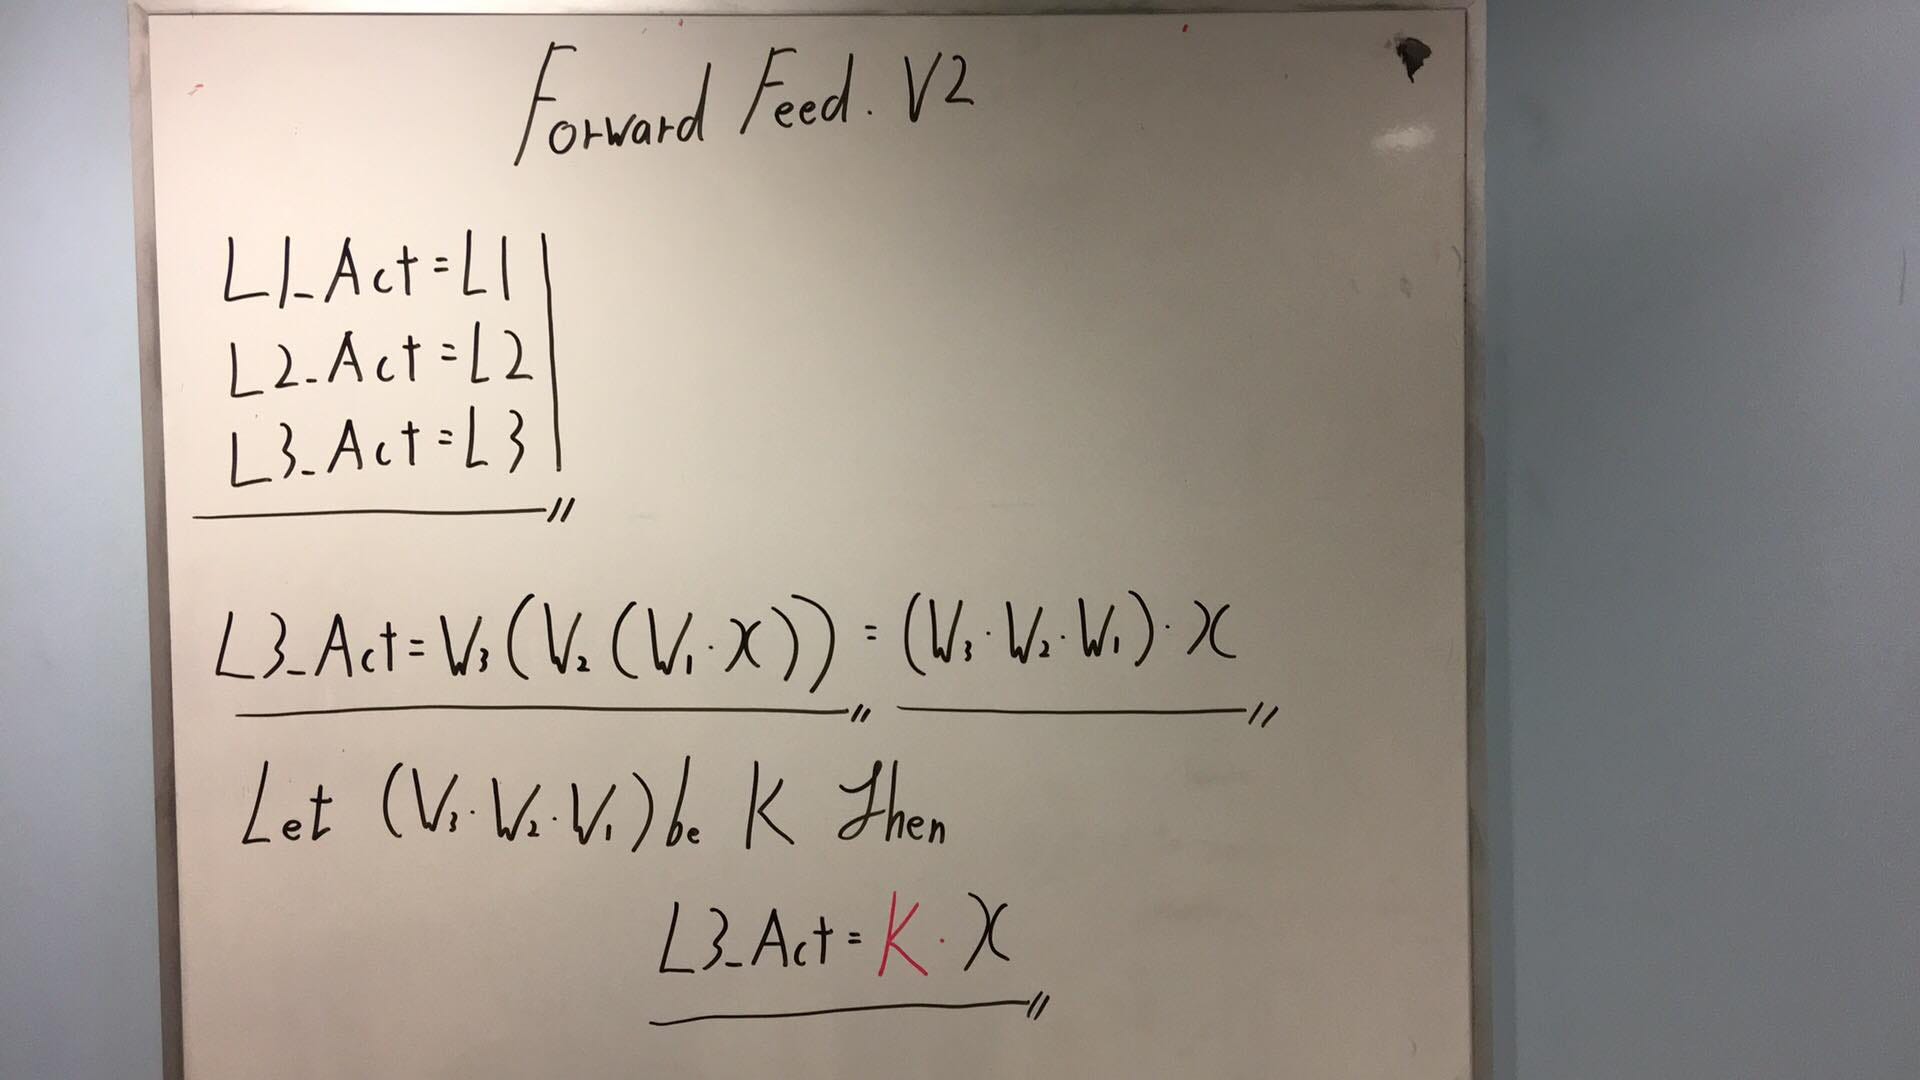 Forward Feed. V2
L1_Act=L1
L2_Act=L2
L3_Act=L3
L3_Act=W₃(W₂(W₁·x))=(W₃·W₂·W₁)·x
Let (W₃·W₂·W₁)be K Then
L3_Act=K·x